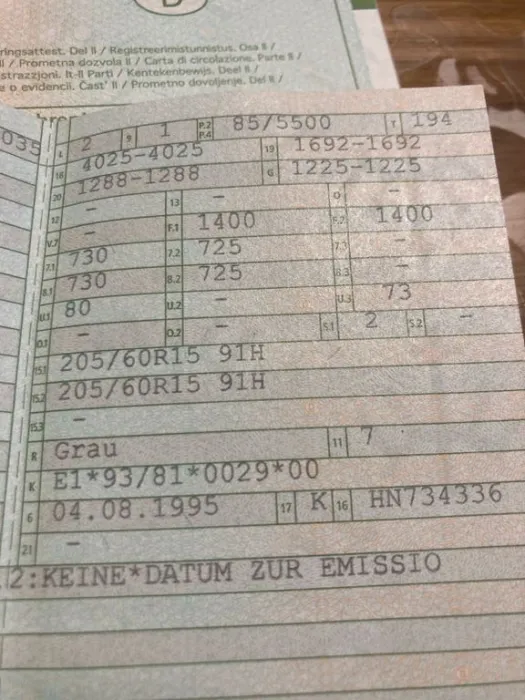 ringsattest. Del II / Registreerimistunnistus. Osa II /
II / Prometna dozvola II / Carta di circolazione. Parte II /
strazzjoni. It-II Parti / Kentekenbewijs. Deel II /
e o evidencii. Časť II / Prometno dovoljenje. Del II /
035 L 2 9 1 P.2 P.4 85/5500 T 194
18 4025-4025 19 1692-1692
20 1288-1288 G 1225-1225
12 – 13 – Q –
V.7 – F.1 1400 F.2 1400
7.1 730 7.2 725 7.3 –
8.1 730 8.2 725 8.3 –
U.1 80 U.2 – U.3 73
O.1 – O.2 – S.1 2 S.2 –
15.1 205/60R15 91H
15.2 205/60R15 91H
15.3 –
R Grau 11 7
K E1*93/81*0029*00
6 04.08.1995 17 K 16 HN734336
21 –
2:KEINE*DATUM ZUR EMISSIO